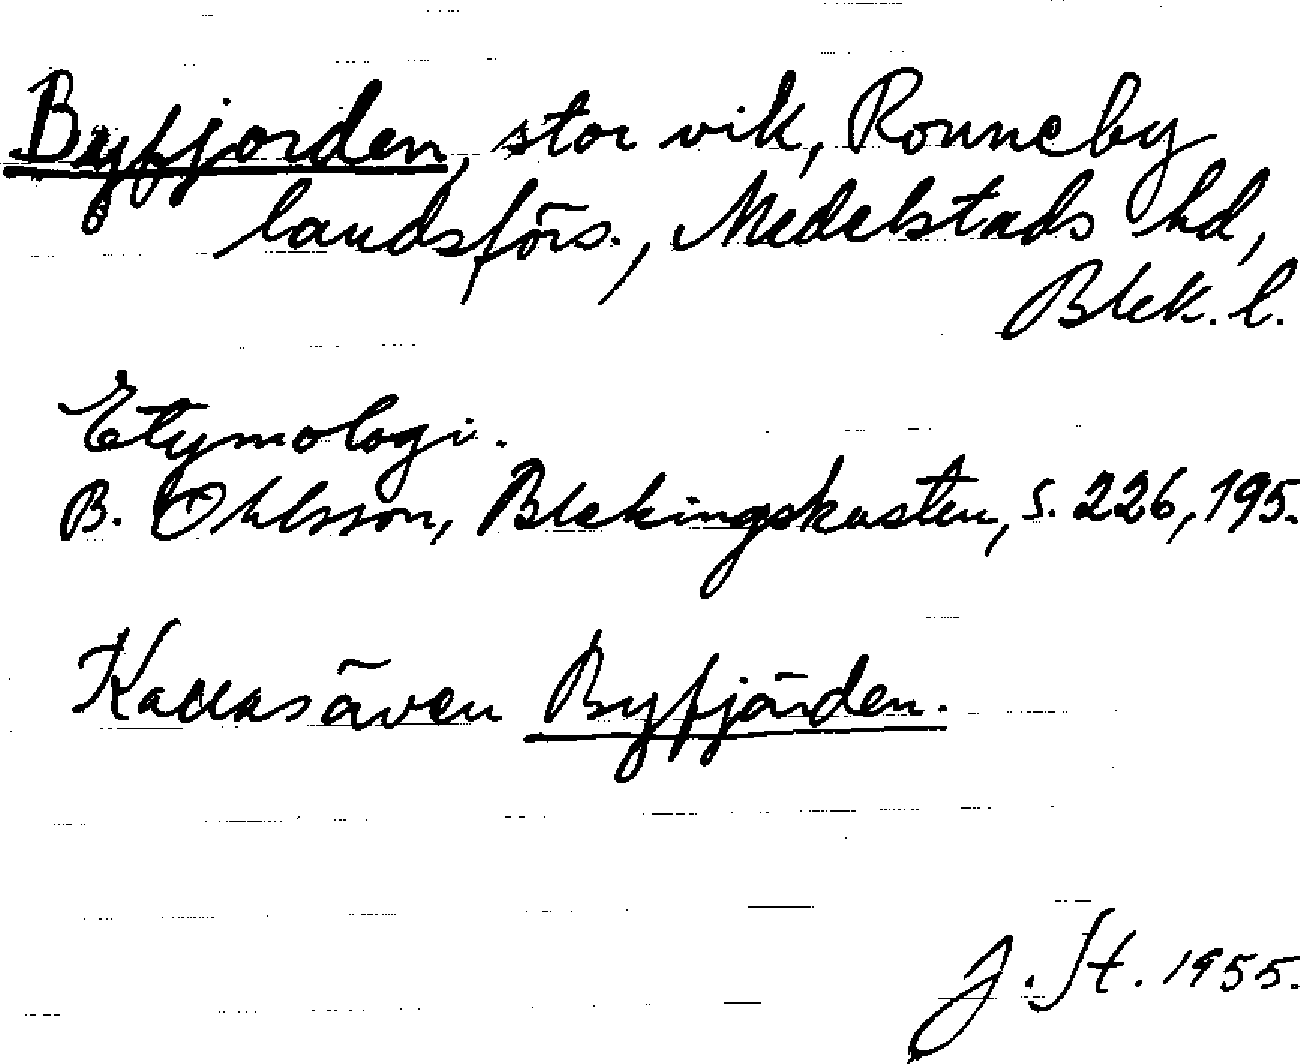 Byfjorden, stor vik, Ronneby
landsförs., Medelstads hd,
Blek. l.
Etymologi.
B. Ohlsson, Blekingskusten, s. 226, 195.
Kallas även Byfjärden.
J. St. 1955.